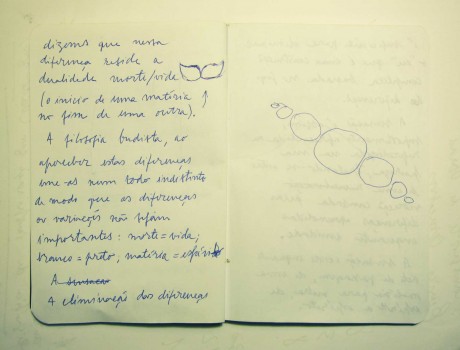 dizemos que nessa
diferença reside a
dualidade morte/vida
(o início de uma matéria
no fim de uma outra).
A filosofia budista, ao
aperceber estas diferenças
une-as num todo indistinto
de modo que as diferenças
ou variações não sejam
importantes: morte=vida;
branco=preto; matéria=espírito
A
A eliminação das diferenças